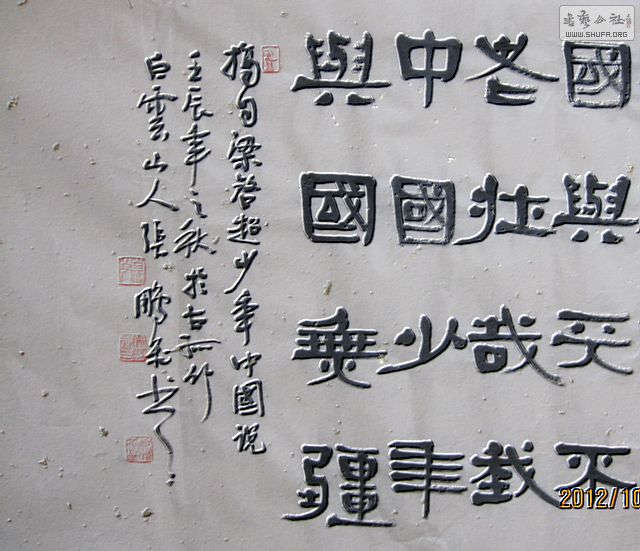 國與天不
老壯哉我
中國少年
與國無疆
摘自梁啓超少年中國說
壬辰年之秋於古
白雲山人張鵬书
書藝公社
WWW.SHUFA.ORG
2012/10